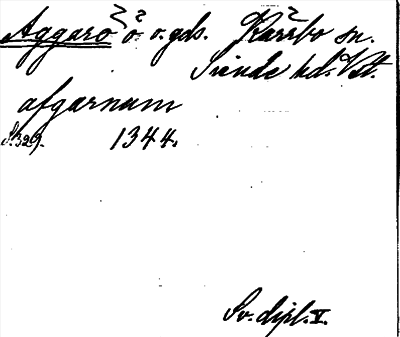 Aggarö ö. o. gds. Kärrbo sn.
Siende hd. Vstm.
afgarnum
S. 329. 1344.
Sv. dipl. V.